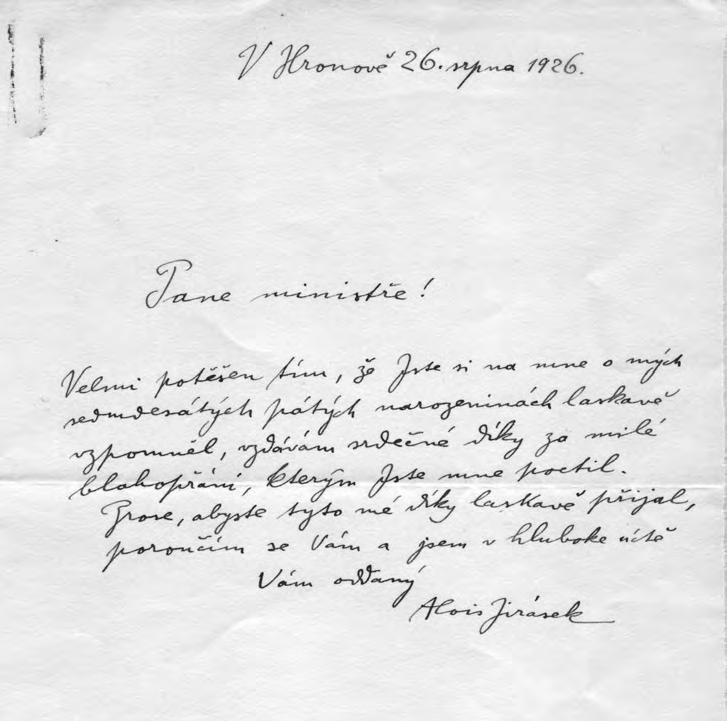 V Hronově 26. srpna 1926.
Pane ministře!
Velmi potěšen tím, že Jste si na mne o mých
sedmdesátých pátých narozeninách laskavě
vzpomněl, vzdávám srdečné díky za milé
blahopřání, kterým Jste mne poctil.
Prose, abyste tyto mé díky laskavě přijal,
poroučím se Vám a jsem v hluboké úctě
Vám oddaný
Alois Jirásek